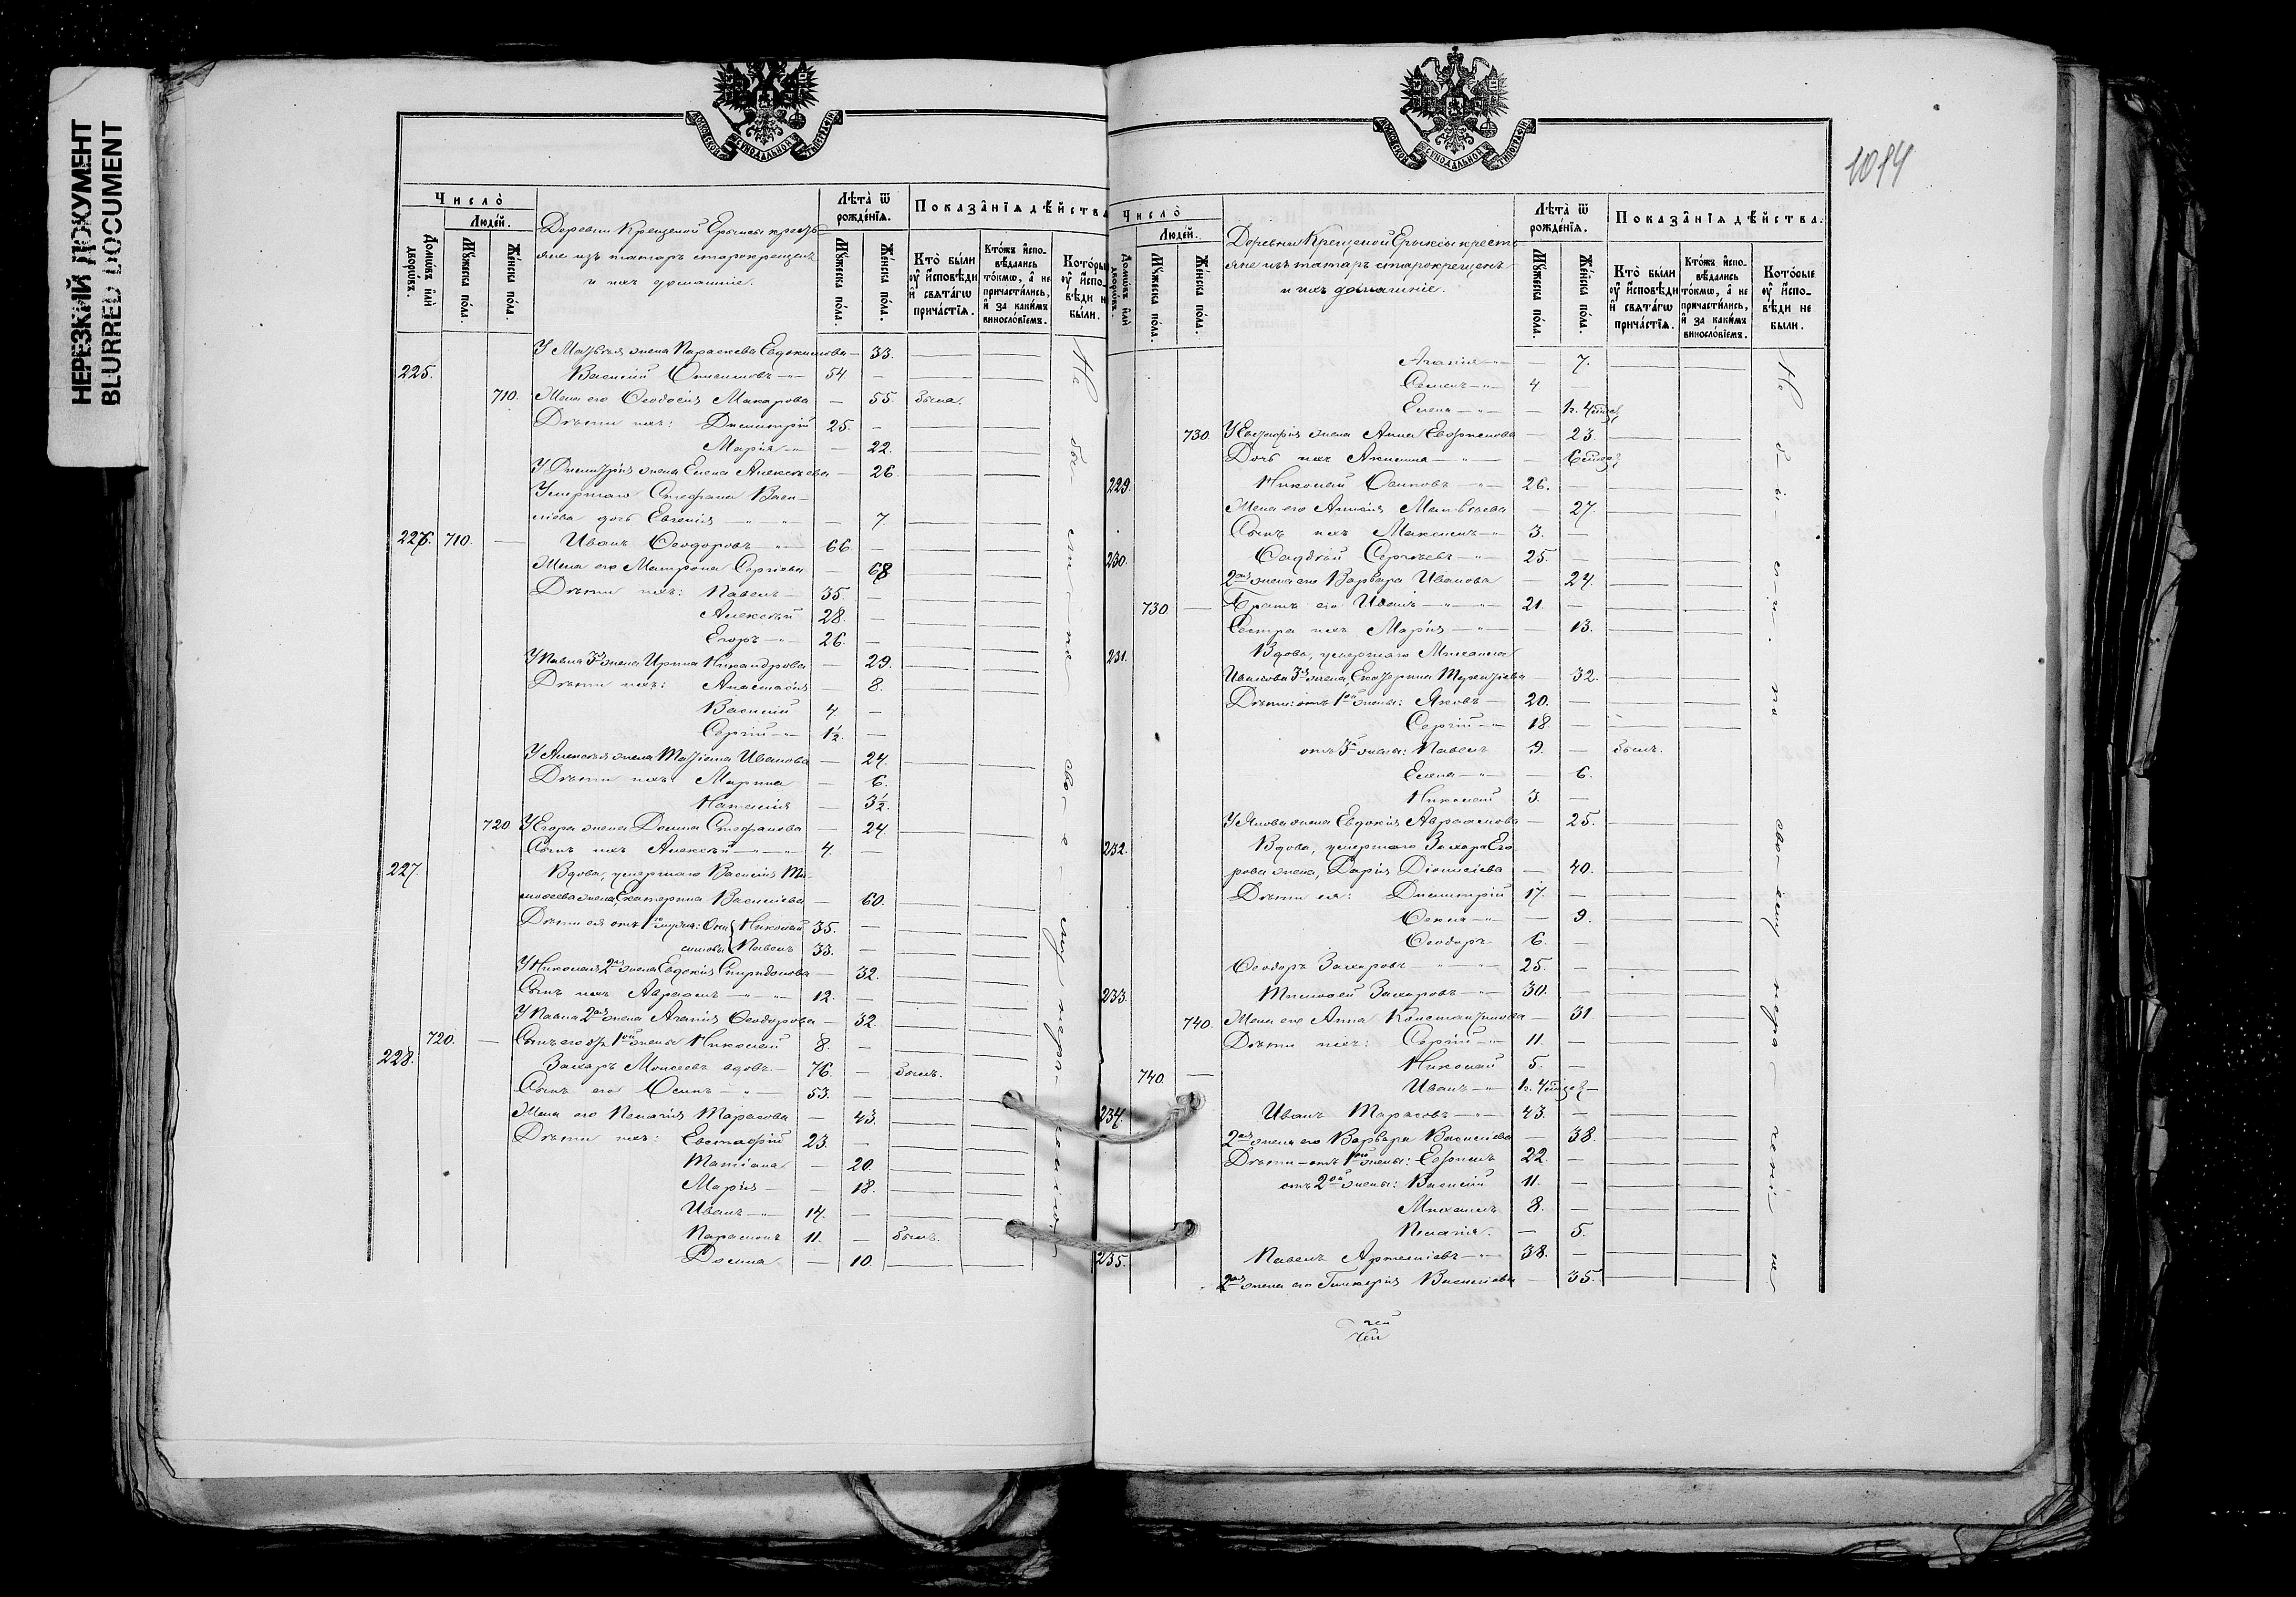 НЕРЕЗКИЙ ДОКУМЕНТ
BLURRED DOCUMENT
Московской Сѵнодальной Типографіи
Число̀
Людей.
Домѡвъ или дворѡвъ.
Мꙋжеска пола.
Женска пола.
Деревни Крещеной Ерыксы кресть=
яне изъ татаръ старокрещенъ
и ихъ домашніе.
Лѣта̀ ѿ рожденїѧ.
Мꙋжеска пола.
Женска пола.
Показанїѧ дѣйства
Кто̀ были оу исповѣди и свѧтагѡ причастїѧ.
Ктожъ исповѣдались токмѡ, а не причастились, и за какимъ винословїемъ.
Которые оу исповѣди не были.
У Матвѣя жена Параскева Евдокимова — 33.
225. Василій Онисимовъ —„— 54 —
710. Жена его Ѳеодосія Макарова — 55. была.
Дѣти ихъ: Димитрій 25. —
Марія —„— — 22.
У Димитрія жена Елена Алексѣева — 26.
Умершаго Стефана Васи-
ліева дочь Евгенія — 7.
226. 710. — Иванъ Ѳеодоровъ —„— 66. —
Жена его Матрона Сергіева — 68
Дѣти ихъ: Павелъ — 35. —
Алексѣй 28. —
Егоръ —„— 26. —
У Павла 3я жена Ирина Никандрова — 29.
Дѣти ихъ: Анастасія — 8.
Василій 4. —
Сергій —„— 1½. —
У Алексѣя жена Татіана Иванова — 24.
Дѣти ихъ: Марина — 6.
Наталія — 3½.
720 У Егора жена Домна Стефанова — 24.
Сынъ ихъ Алексѣй —„— 4. —
227. Вдова, умершаго Василія Ти-
моѳеева жена, Екатерина Василіева — 60.
Дѣти ея отъ 1го мужа: Они Николай 35. —
симовы Павелъ 33. —
У Николая 2ая жена Евдокія Спиридонова — 32.
Сынъ ихъ Авраамъ —„— 12. —
У Павла 2ая жена Агапія Ѳеодорова — 32.
720. — Сынъ его отъ 1ой жены Николай 8. —
228. Захаръ Моисеевъ вдовъ. — 76. — былъ.
Сынъ его Осипъ „ 53. —
Жена его Пелагія Тарасова — 43.
Дѣти ихъ: Евстафій 23. —
Татіана — 20.
Марія — — 18.
Иванъ —„— 14. —
Парамонъ 11. — былъ.
Домна — 10.
Не бы-ли-по сво-е-му нера-
1014
Московской Сѵнодальной Типографіи
Число̀
Людей.
Домѡвъ или дворѡвъ.
Мꙋжеска пола.
Женска пола.
Деревни Крещеной Ерыксы кресть
яне изъ татаръ старокрещенъ
и ихъ домашніе.
Лѣта̀ ѿ рожденїѧ.
Мꙋжеска пола.
Женска пола.
Показанїѧ дѣйства.
Кто̀ были оу исповѣди и свѧтагѡ причастїѧ.
Ктожъ исповѣдались токмѡ, а не причастились, и за какимъ винословїемъ.
Которые оу исповѣди не были.
Агапія —„— — 7.
Семенъ —„— 4 —
Елена —„— — 1г. 4 мѣс.
730. У Евстафія жена Анна Евфимова — 23.
Дочь ихъ Акилина — 6 мѣс.
229. Николай Осиповъ —„— 26. —
Жена его Анисія Матвѣева — 27.
Сынъ ихъ Максимъ —„— 3. —
230. Сергѣевъ —„— 25. —
2ая жена его Варвара Иванова — 24.
730 — Братъ его Иванъ —„— 21. —
Сестра ихъ Марія —„— 13.
231. Вдова, умершаго Михаила
Иванова 3я жена, Екатерина Терентіева — 32.
Дѣти: отъ 1ой жены: Яковъ — 20. —
Сергій —„— 18 —
отъ 3й жены: Павелъ 9. — былъ.
Елена —„— — 6.
Николай 3. —
У Якова жена Евдокія Авраамова — 25.
232. Вдова, умершаго Захара Его
рова жена, Дарія Діонисіева — 40.
Дѣти ея: Димитрій 17. —
Ѳекла —„— — 9.
Ѳеодоръ 6. —
Ѳеодоръ Захаровъ 25. —
233. Тимоѳей Захаровъ —„— 30. —
740. Жена его Анна Константинова — 31
Дѣти ихъ: Сергій —„— 11. —
Николай 5. —
740 — Иванъ —„— 1г. 4 мѣс. —
234. Иванъ Тарасовъ —„— 43. —
2ая жена его Варвара Василіева — 38.
Дѣти — отъ 1ой жены: Евфимъ 22. —
отъ 2ой жены: Василій 11. —
Михаилъ 8. —
Пелагія. — 5.
235. Павелъ Артеміевъ —„— 38. —
2ая жена его Гликерія Василіева — 35.
Не б-ы-л-и. по сво-ему нера-